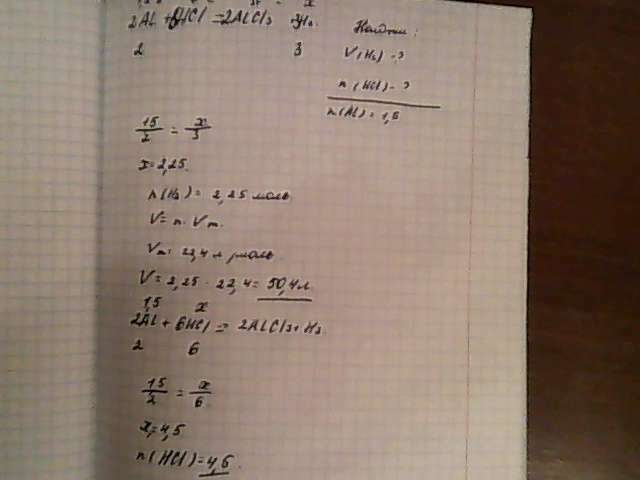 2Al + 6HCl = 2AlCl3 + 3H2
2 3
Найти:
V(H2) - ?
n(HCl) - ?
n(Al) = 1,5
15/2 = x/3
x = 2,25.
n(H2) = 2,25 моль
V = n · Vm.
Vm = 22,4 л/моль.
V = 2,25 · 22,4 = 50,4 л.
1,5 x
2Al + 6HCl = 2AlCl3 + H2
2 6
15/2 = x/6
x = 4,5
n(HCl) = 4,5.